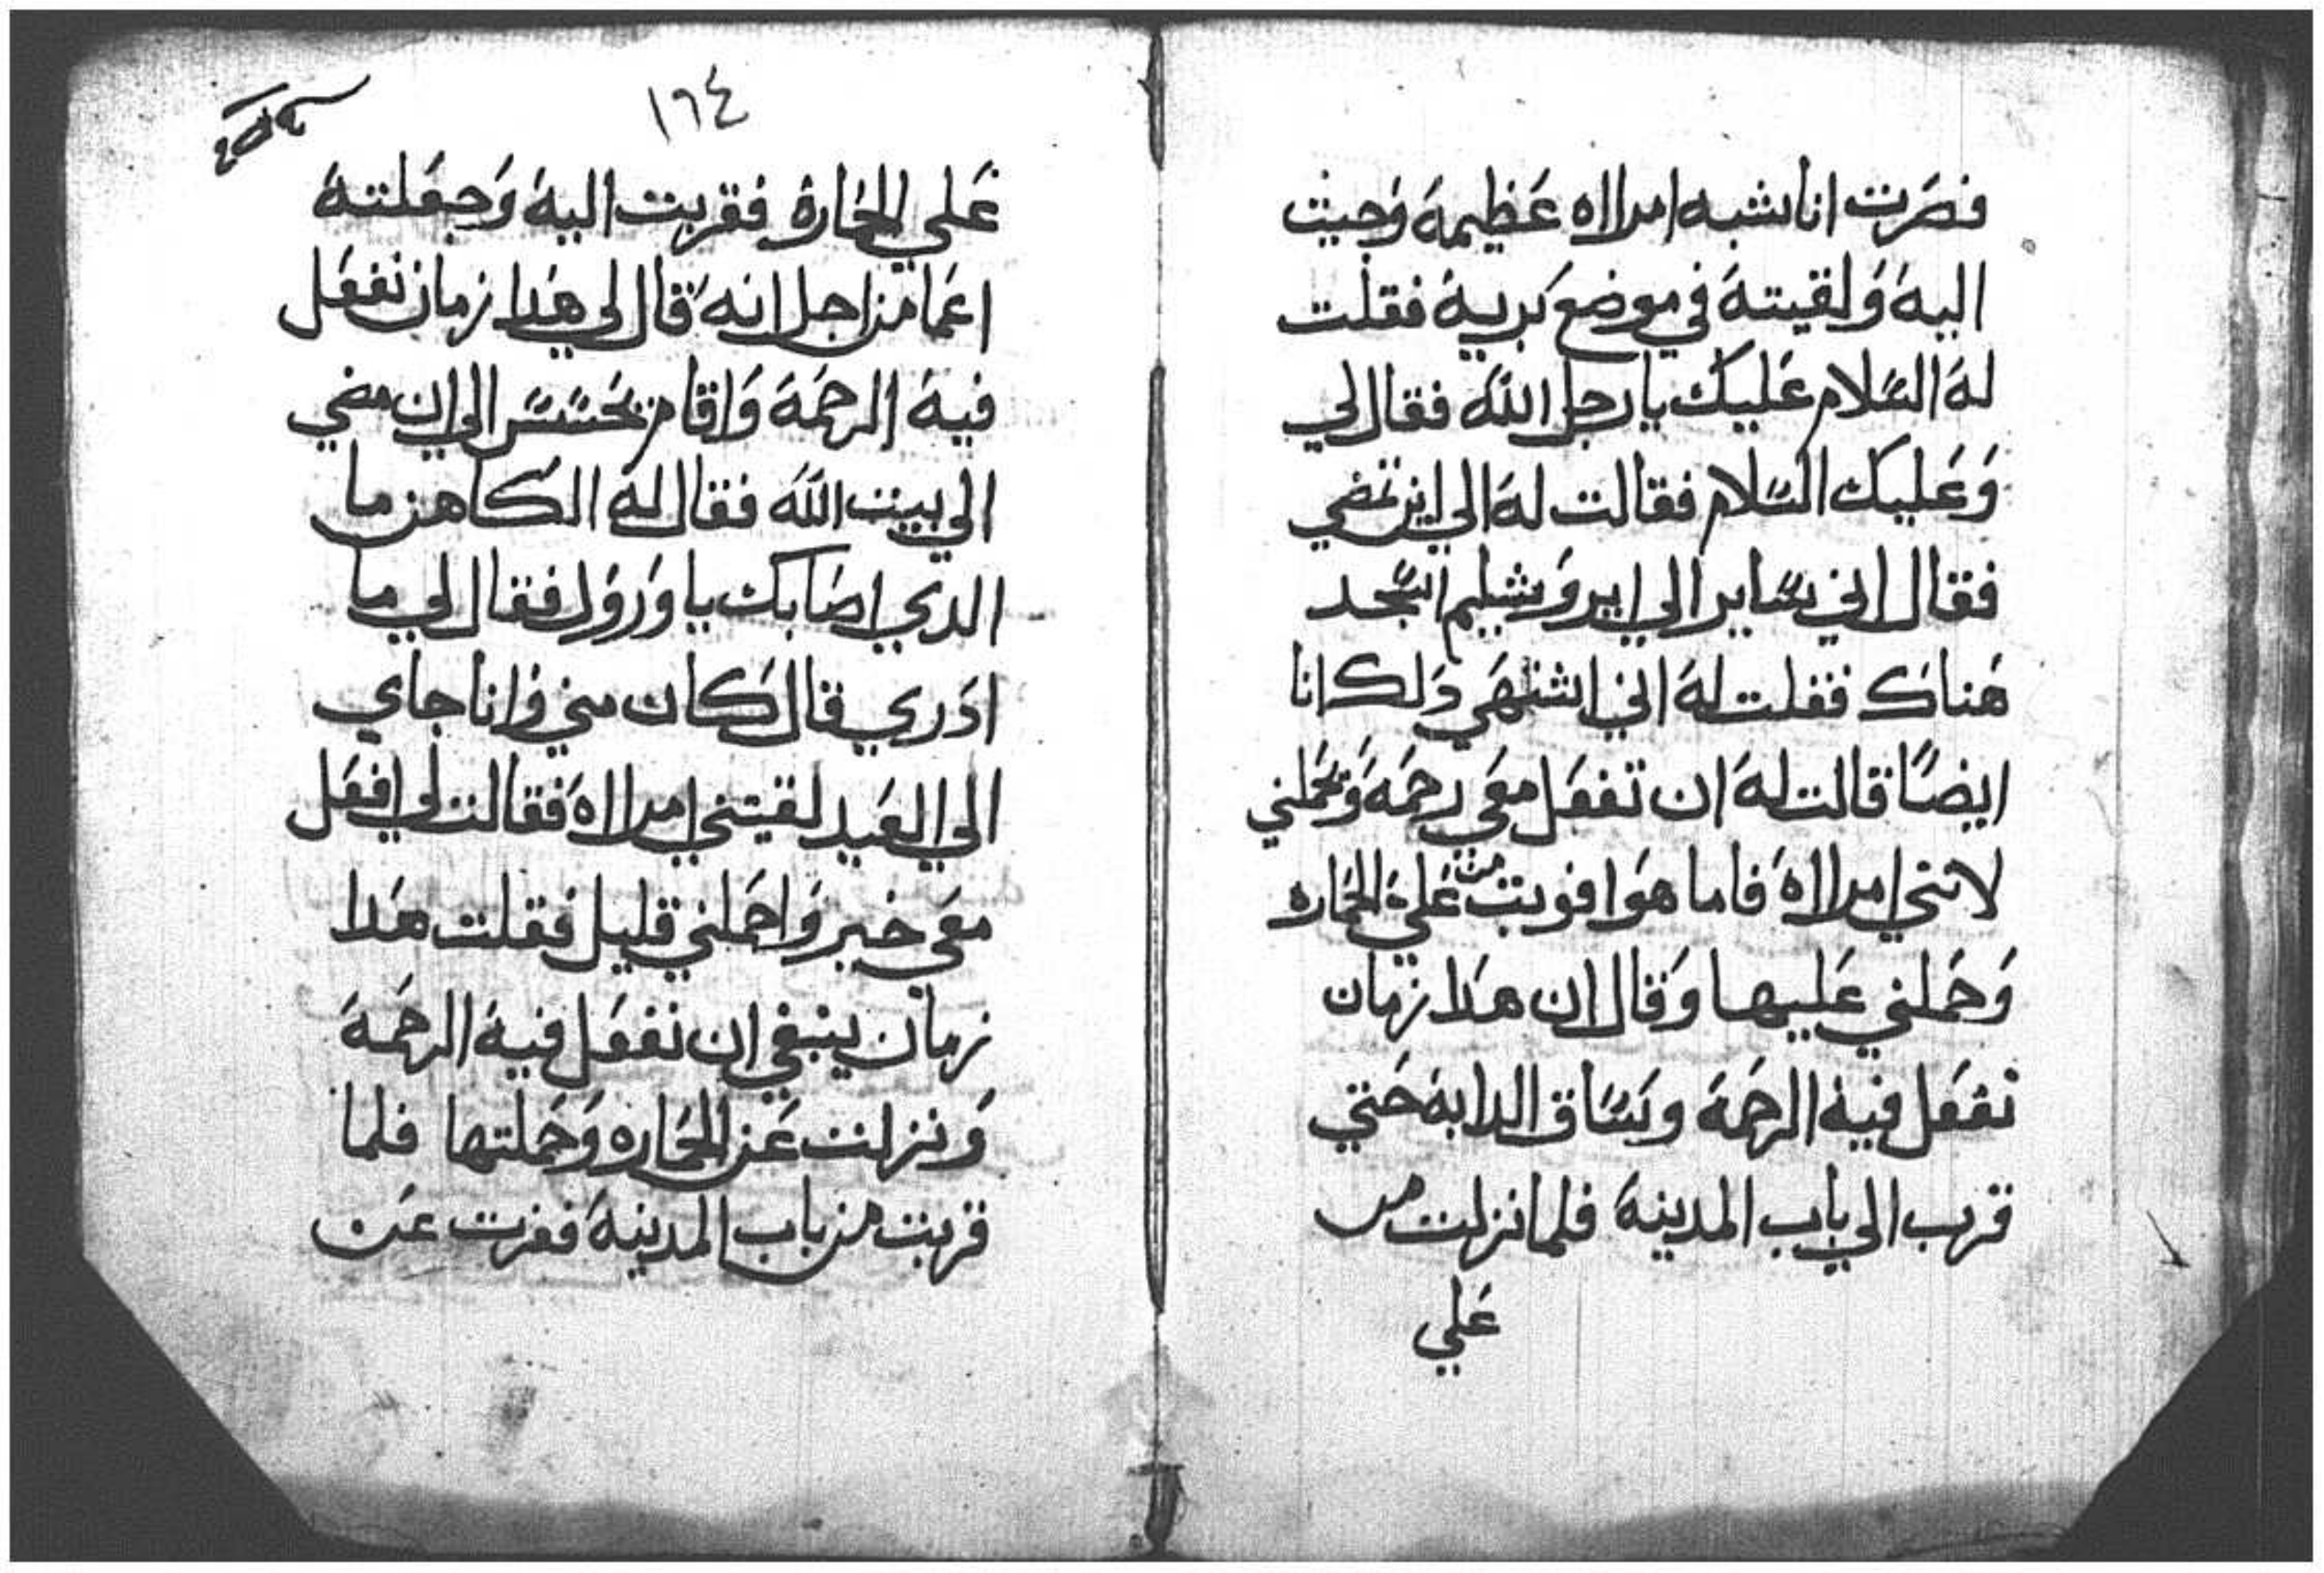 فصرت انا شبه امراه عظيمة وجيت
اليه ولقيته في موضع برية فقلت
له السلام عليك يا رجل الله فقال لي
وعليك السلام فقالت له الي اين تمضي
فقال اني ساير الي ايروشليم اسجد
هناك فقلت له اني اشتهي دلك انا
ايضا قالت له ان تفعل معي رحمة وتحملني
لانني امراة فاما هوا علي الحماره
وحملني عليها وقال ان هدا زمان
نفعل فيه الرحمة وساق الدابة حتي
قرب الي باب المدينة فلما نزلت من
علي
١٦٤
علي الحمارة فقربت اليه وجعلته
اعما من اجل انه قال لي هدا زمان نفعل
فيه الرحمة واقام يحسس الي ان مضي
الي بيت الله فقال له الكاهن ما
الدي اصابك يا فقال لي ما
ادري قال كان مني وانا جاي
الي العيد لقيتني امراة فقالت لي افعل
معي خير واحملني قليل فقلت هدا
زمان ينبغي ان نفعل فيه الرحمة
ونزلت عن الحماره وحملتها فلما
قربت من باب المدينة فغرت عن